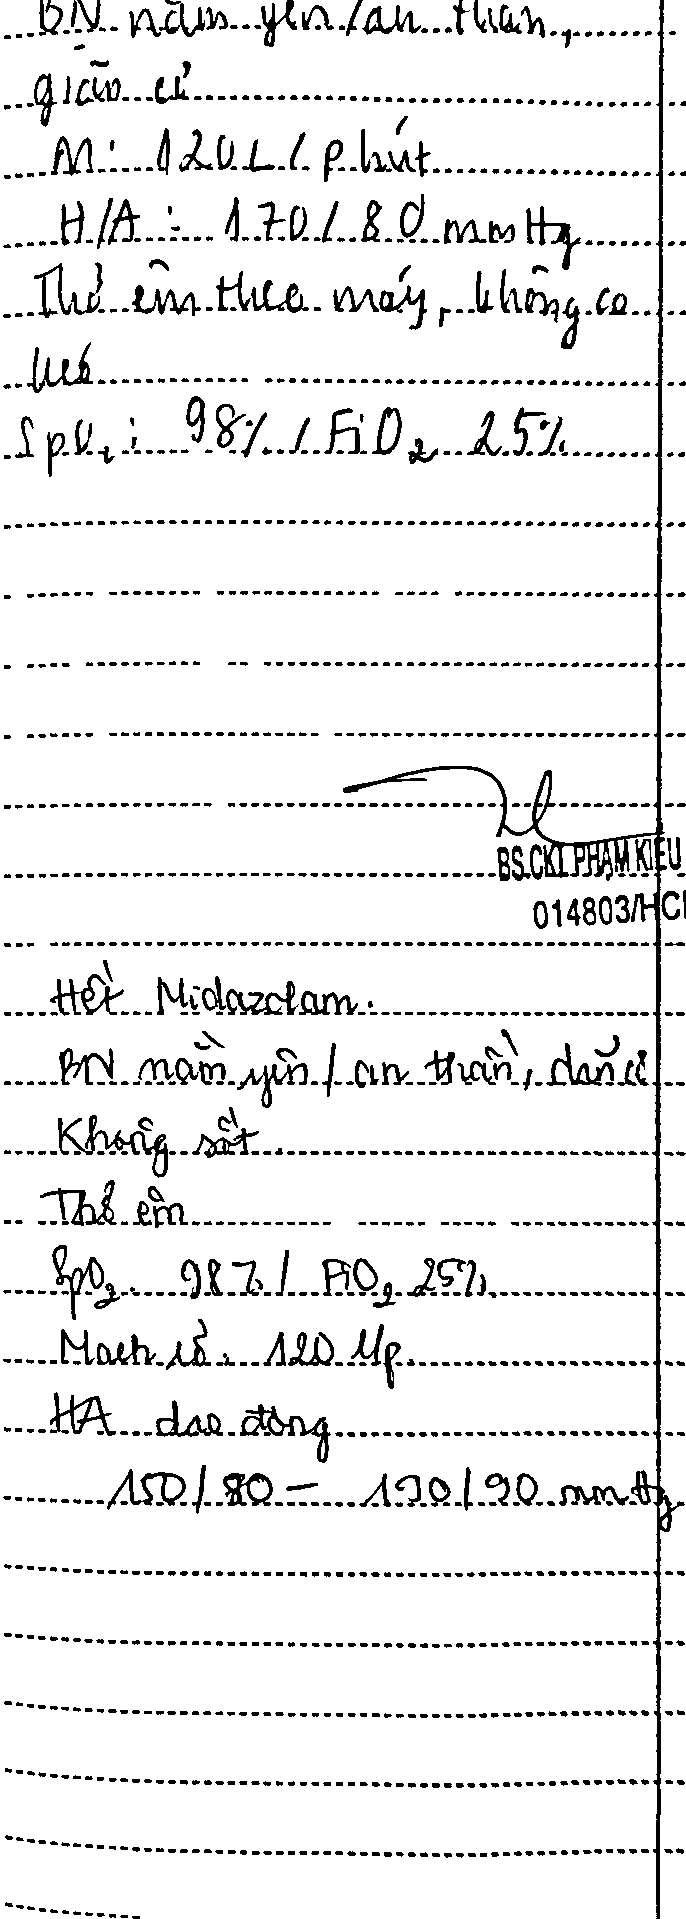 BN nằm yên/an thần,
giãn cơ
M: 120 L/phút
H/A: 170/80 mmHg
Thở êm theo máy, không co
kéo
SpO₂: 98% / FiO₂ 25%
BS.CKI. PHẠM KIỀU
014803/HC
Hết Midazolam.
BN nằm yên / an thần, dãn cơ
Không sốt.
Thở êm
SpO₂. 98% / FiO₂ 25%.
Mạch rõ. 120 l/p.
HA dao động
150/80 - 190/90 mmHg